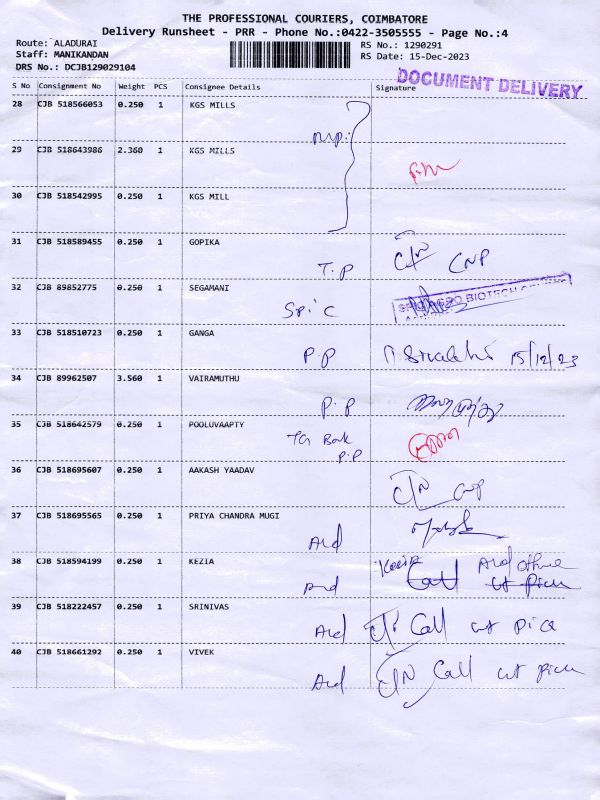 THE PROFESSIONAL COURIERS, COIMBATORE
Delivery Runsheet - PRR - Phone No.:0422-3505555 - Page No.:4
Route: ALADURAI
RS No.: 1290291
Staff: MANIKANDAN
RS Date: 15-Dec-2023
DRS No.: DCJB129029104
DOCUMENT DELIVERY
S No Consignment No Weight PCS Consignee Details Signature
28 CJB 518566053 0.250 1 KGS MILLS
29 CJB 518643986 2.360 1 KGS MILLS
30 CJB 518542995 0.250 1 KGS MILL
31 CJB 518589455 0.250 1 GOPIKA
T.P C/N CNP
32 CJB 89852775 0.250 1 SEGAMANI
Spic BIOTECH
33 CJB 518510723 0.250 1 GANGA
P.P 15/12/23
34 CJB 89962507 3.560 1 VAIRAMUTHU
P.P
35 CJB 518642579 0.250 1 POOLUVAAPTY
P.P
36 CJB 518695607 0.250 1 AAKASH YAADAV
C/N CNP
37 CJB 518695565 0.250 1 PRIYA CHANDRA MUGI
Ald
38 CJB 518594199 0.250 1 KEZIA
Ald Kezia Call
39 CJB 518222457 0.250 1 SRINIVAS
Ald C/N Call
40 CJB 518661292 0.250 1 VIVEK
Ald C/N Call